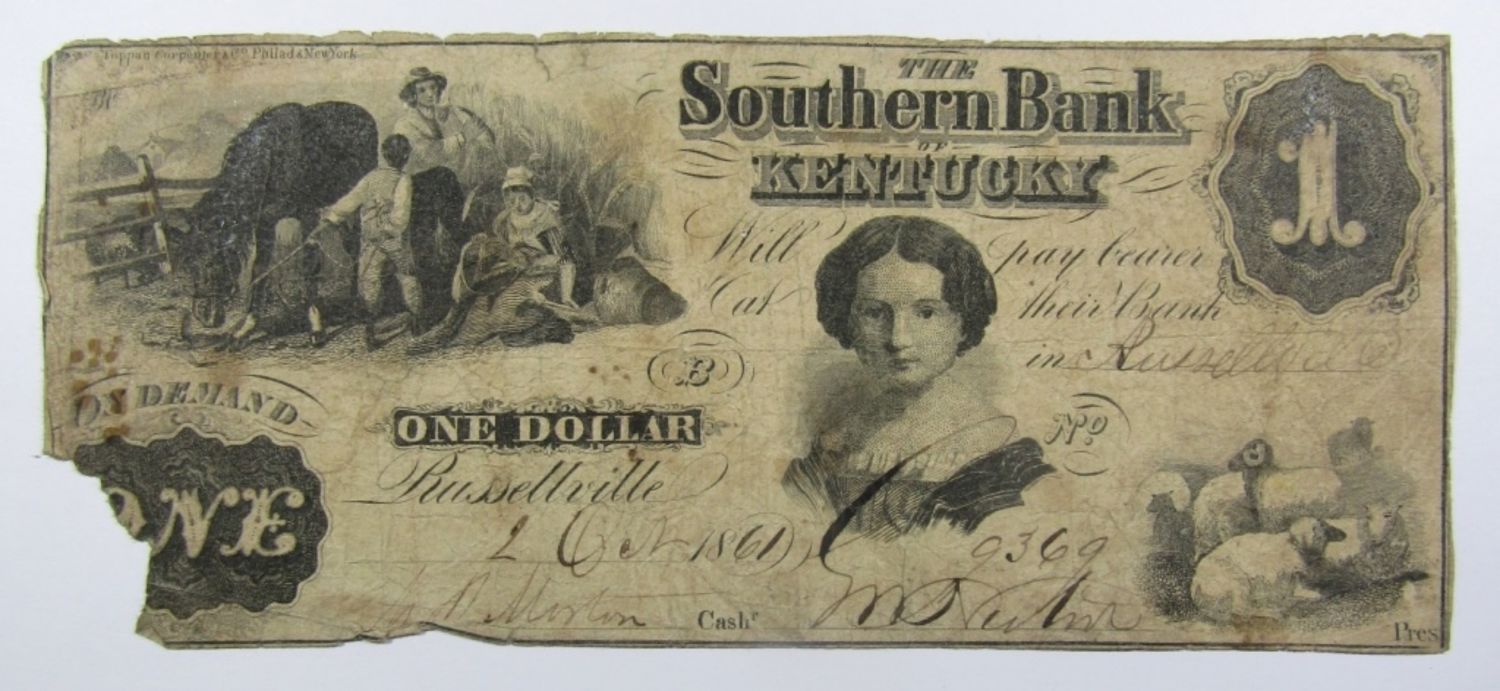 Toppan Carpenter & Co. Philad & New York
THE
Southern Bank
OF
KENTUCKY
1
Will pay bearer
at their Bank
in Russellville
B
ON DEMAND
ONE DOLLAR
No
Russellville
ONE
2 Oct 1861
9369
Morton
Cashr
Pres